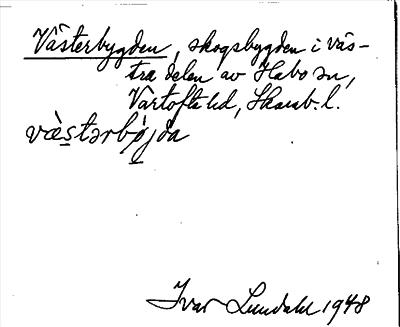 Västerbygden, skogsbygden i väs-
tra delen av Habo sn,
Vartofta hd, Skarab. l.
væ̀stərbøjda
Ivar Lundahl 1948